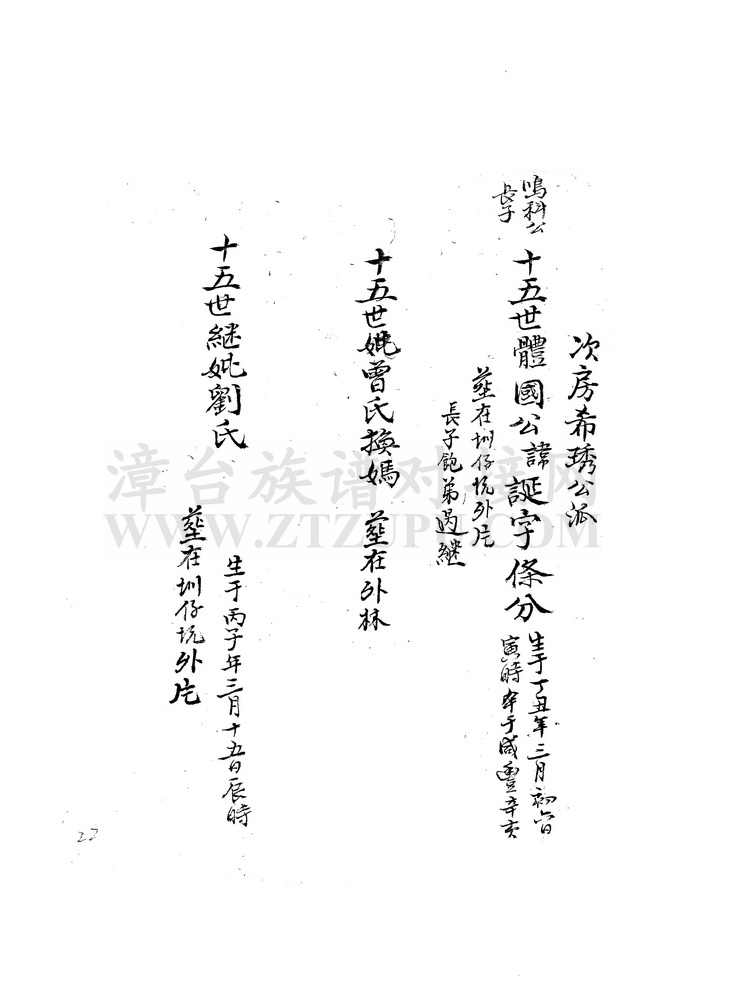 次房希琇公派
鳴科公
長子
十五世體國公諱誕字條分
生于丁丑年三月初六日
寅時卒于咸豐辛亥
塟在圳仔坑外片
長子飽弟過継
十五世妣曾氏換媽 塟在外林
十五世継妣劉氏
生于丙子年三月十五日辰時
塟在圳仔坑外片
22
漳台族谱对接网
WWW.ZTZUPU.COM